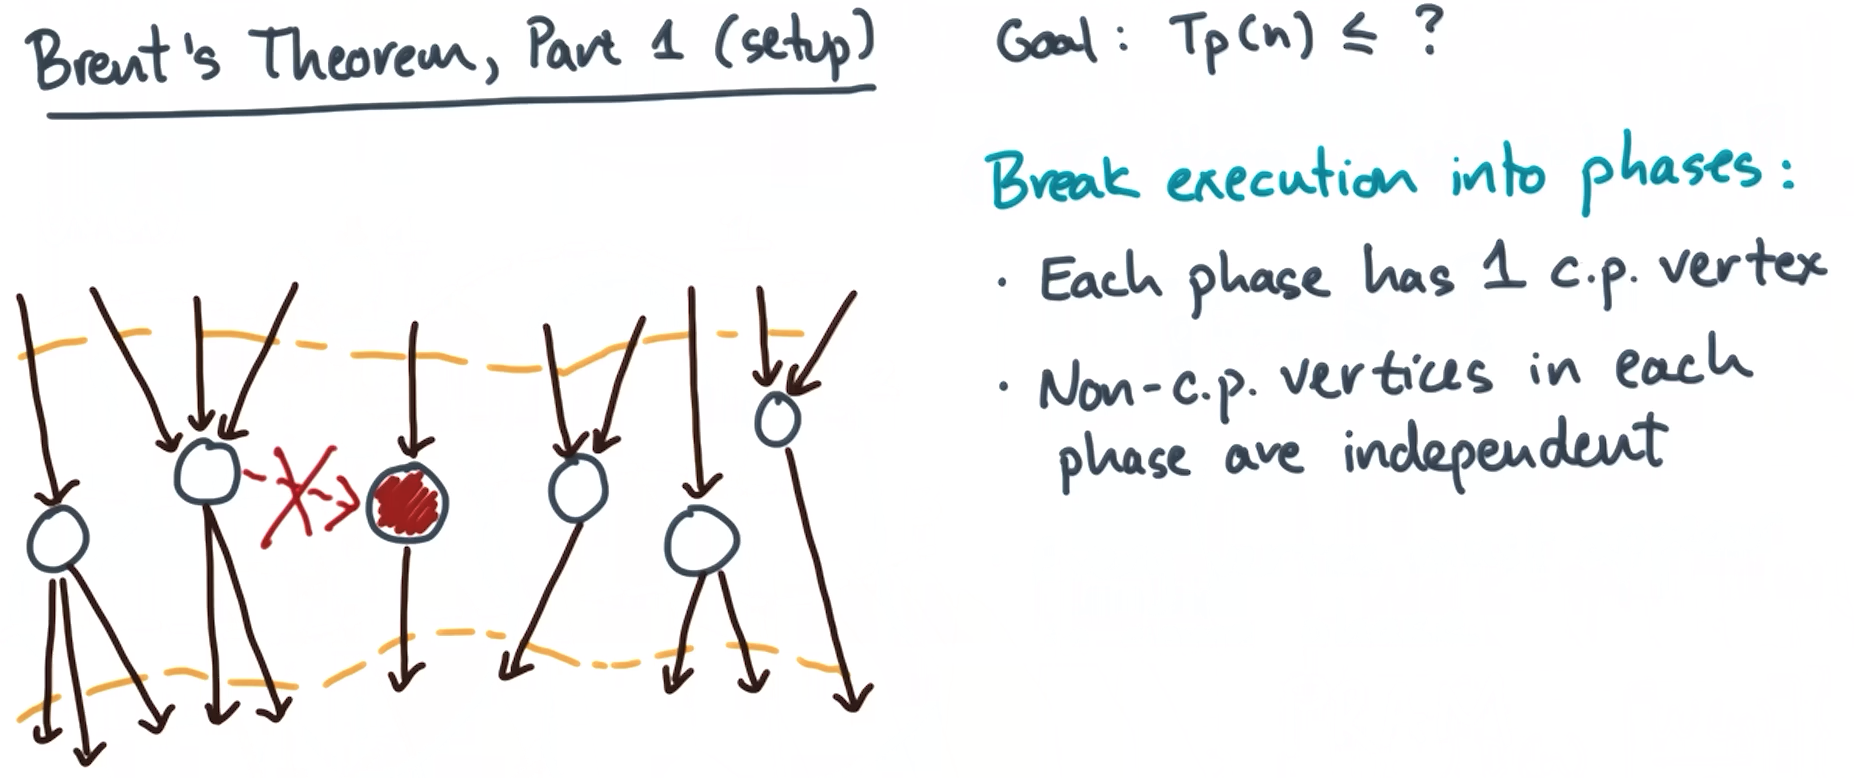 Brent's Theorem, Part 1 (setup)
Goal: Tp(n) ≤ ?
Break execution into phases:
· Each phase has 1 c.p. vertex
· Non-c.p. vertices in each
phase are independent